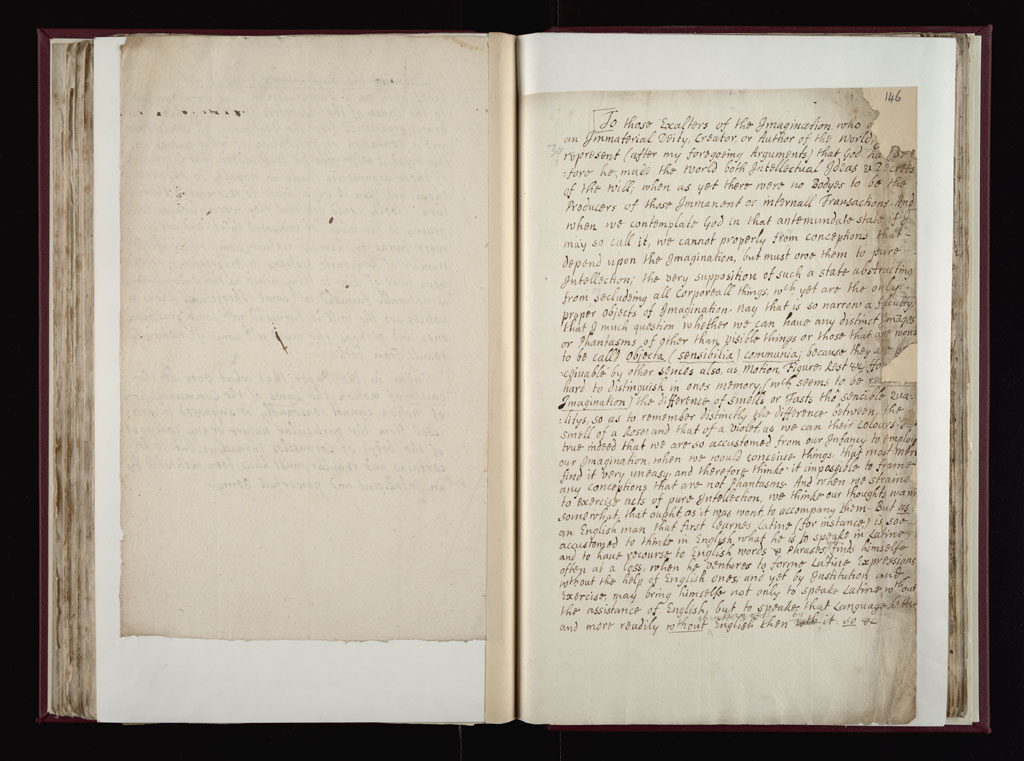 146
To those Exalters of the Imagination who
an Immaterial Deity, Creator, or Author of the World
represent (after my foregoeing Arguments) that God ha be
:fore he, made the World both Intellectual Ideas & Decrees
of the will; when as yet there were no Bodyes to be the
Producers of those Immanent or internall Transactions. And
when we contemplate God in that antemundate state, if I
may so call it, we cannot properly from conceptions that
depend upon the Imagination, but must owe them to pure
Intellection; the very supposition of such a state abstracting
from Secludeing all Corporeall things, wch yet are the only
proper objects of Imagination. Nay that is so narrow a faculty,
that I much question whether we can have any distinct Images
or Phantasms of other than visible things or those that are wont
to be call'd Objecta (sensibilia) communia; because they a
:ceivable by other sences also, as Motion, Figure, Rest &c. for
hard to distinguish in ones memory, (wch seems to be
Imagination) the difference of smells or Tasts the sencible Qua:
:litys, so as to remember distinctly the difference between, the
smell of a Rose and that of a violet, as we can their Colours.
true indeed that we are so accustomed from our Infancy to employ
our Imagination, when we would conceive things, that most men
find it very uneasy, and therefore thinke it impossible to frame
any conceptions that are not Phantasms. And when we straine
to exercise acts of pure Intellection, we thinke our thoughts want
somewhat, that ought as it was wont to accompany them. But as
an English man, that first learnes Latine (for instance) is soe
accustomed to thinke in English what he is to speake in Latine
and to have recourse to English words & Phrases, finds himselfe
often at a loss, when he ventures to forme Latine Expressions
without the help of English ones; and yet by Institution and
Exercise, may bring himselfe not only to speake Latine wthout
the assistance of English, but to speake that Language better
and more readily wthout English then with it. so &c